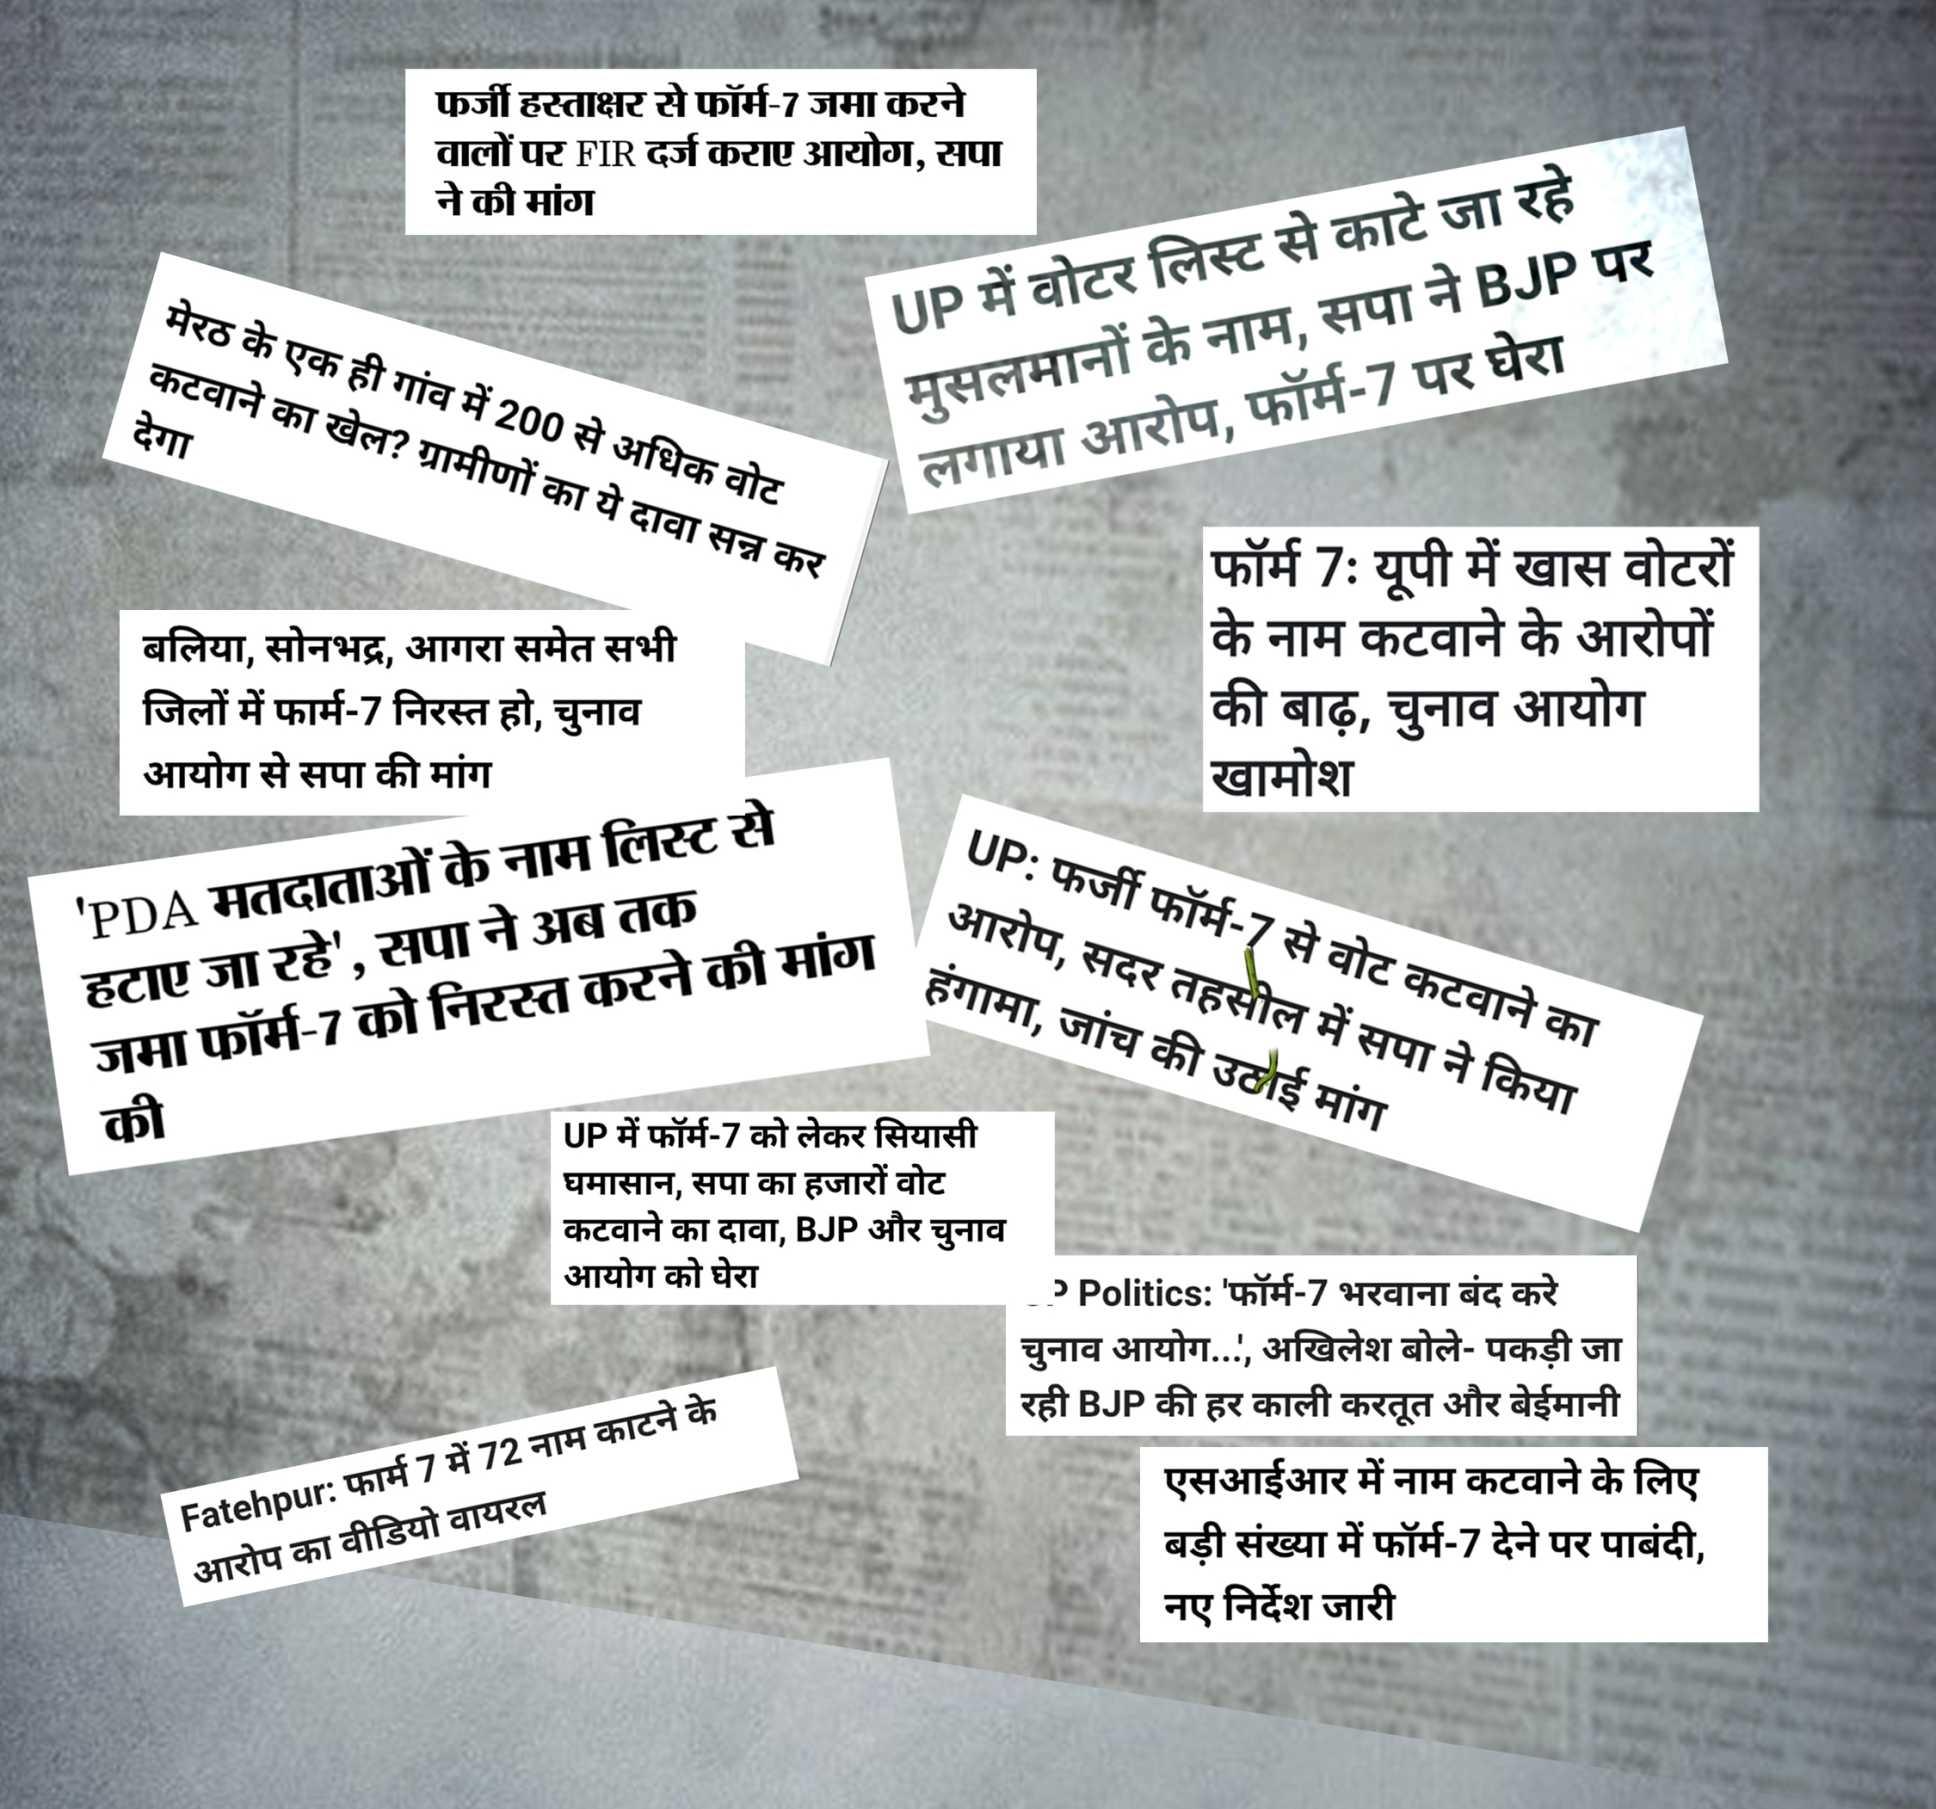 फर्जी हस्ताक्षर से फॉर्म-7 जमा करने
वालों पर FIR दर्ज कराए आयोग, सपा
ने की मांग
UP में वोटर लिस्ट से काटे जा रहे
मुसलमानों के नाम, सपा ने BJP पर
लगाया आरोप, फॉर्म-7 पर घेरा
मेरठ के एक ही गांव में 200 से अधिक वोट
कटवाने का खेल? ग्रामीणों का ये दावा सन्न कर
देगा
फॉर्म 7ः यूपी में खास वोटरों
के नाम कटवाने के आरोपों
की बाढ़, चुनाव आयोग
खामोश
बलिया, सोनभद्र, आगरा समेत सभी
जिलों में फार्म-7 निरस्त हो, चुनाव
आयोग से सपा की मांग
'PDA मतदाताओं के नाम लिस्ट से
हटाए जा रहे', सपा ने अब तक
जमा फॉर्म-7 को निरस्त करने की मांग
की
UP: फर्जी फॉर्म-7 से वोट कटवाने का
आरोप, सदर तहसील में सपा ने किया
हंगामा, जांच की उठाई मांग
UP में फॉर्म-7 को लेकर सियासी
घमासान, सपा का हजारों वोट
कटवाने का दावा, BJP और चुनाव
आयोग को घेरा
Politics: 'फॉर्म-7 भरवाना बंद करे
चुनाव आयोग...', अखिलेश बोले- पकड़ी जा
रही BJP की हर काली करतूत और बेईमानी
Fatehpur: फार्म 7 में 72 नाम काटने के
आरोप का वीडियो वायरल
एसआईआर में नाम कटवाने के लिए
बड़ी संख्या में फॉर्म-7 देने पर पाबंदी,
नए निर्देश जारी